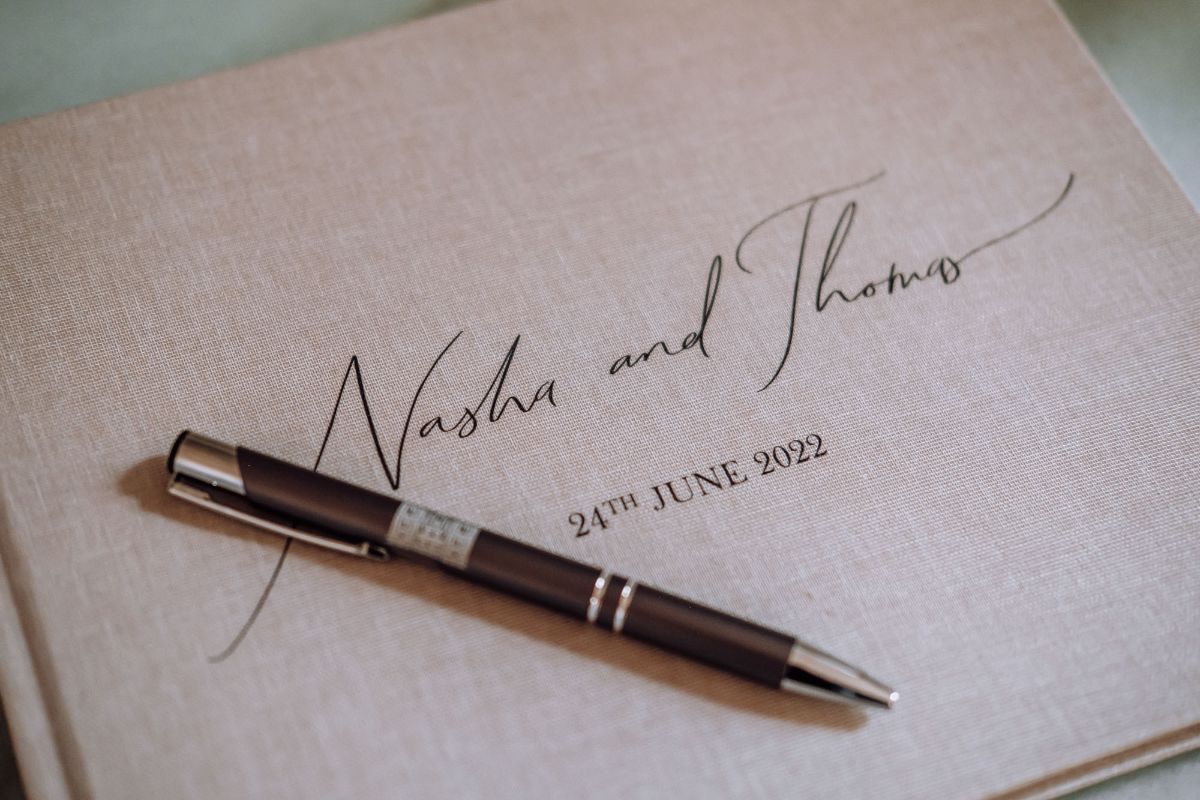 Nasha and Thomas
24TH JUNE 2022